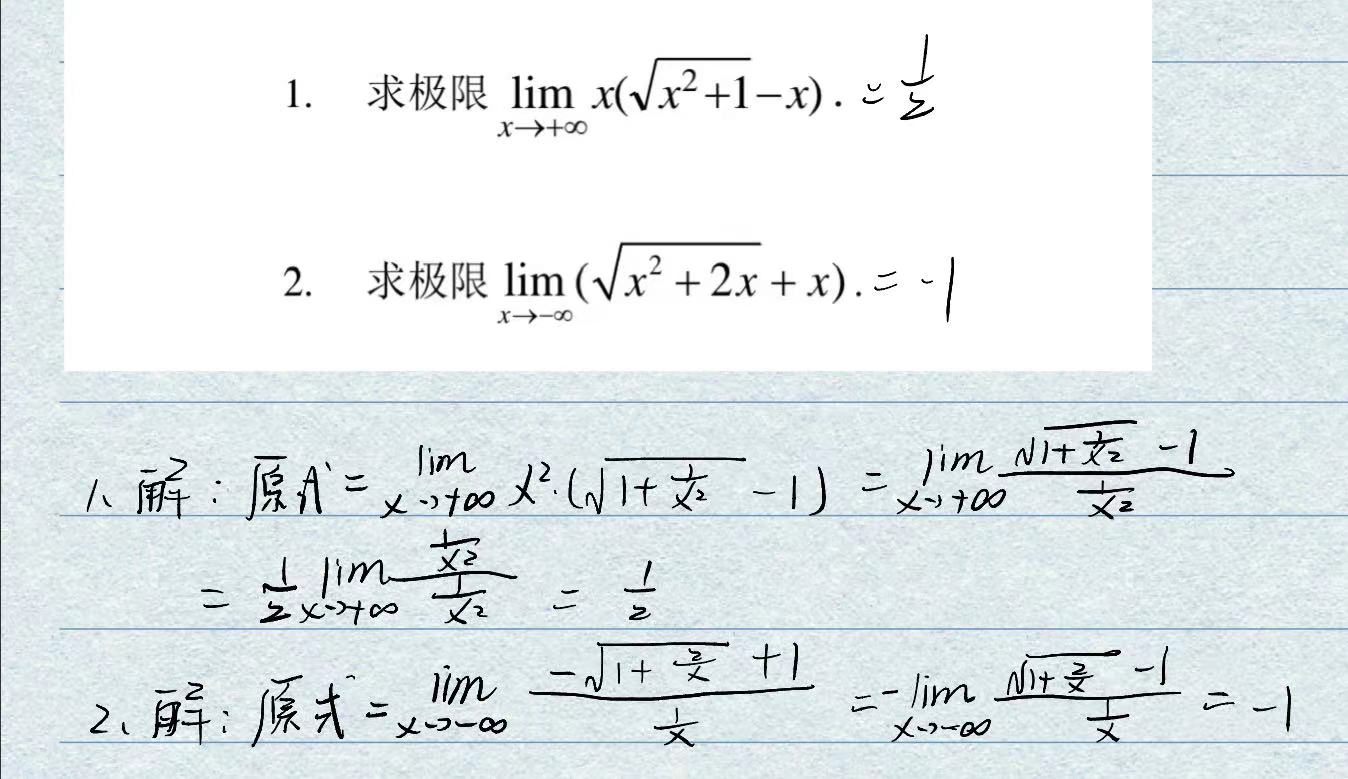 1. 求极限 lim_{x→+∞} x(√(x²+1)−x). = 1/2
2. 求极限 lim_{x→−∞} (√(x²+2x)+x). = -1
1、解：原式 = lim_{x→+∞} x²·(√(1+1/x²) -1) = lim_{x→+∞} (√(1+1/x²) -1)/(1/x²)
= 1/2 lim_{x→+∞} (1/x²)/(1/x²) = 1/2
2、解：原式 = lim_{x→-∞} (-√(1+2/x) +1)/(1/x) = -lim_{x→-∞} (√(1+2/x) -1)/(1/x) = -1